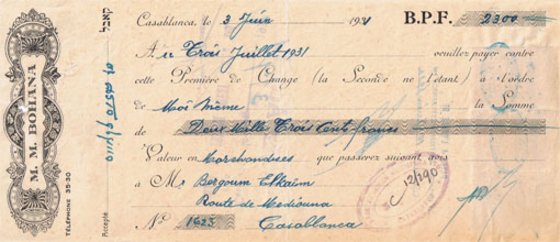 Casablanca, le 3 Juin 1931 B.P.F. 2300
A u Trois Juillet 1931 veuillez payer contre
cette Première de Change (la Seconde ne l'étant) à l'ordre
de Moi Même la Somme
de Deux Mille Trois Cents francs
Valeur en Marchandises que passerez suivant avis
à Mr Bergoum Elhaïm
Route de Mediouna
No 1623 Casablanca
M. M. BOHANA
TÉLÉPHONE 35-30
Accepté
קאבל
12/290